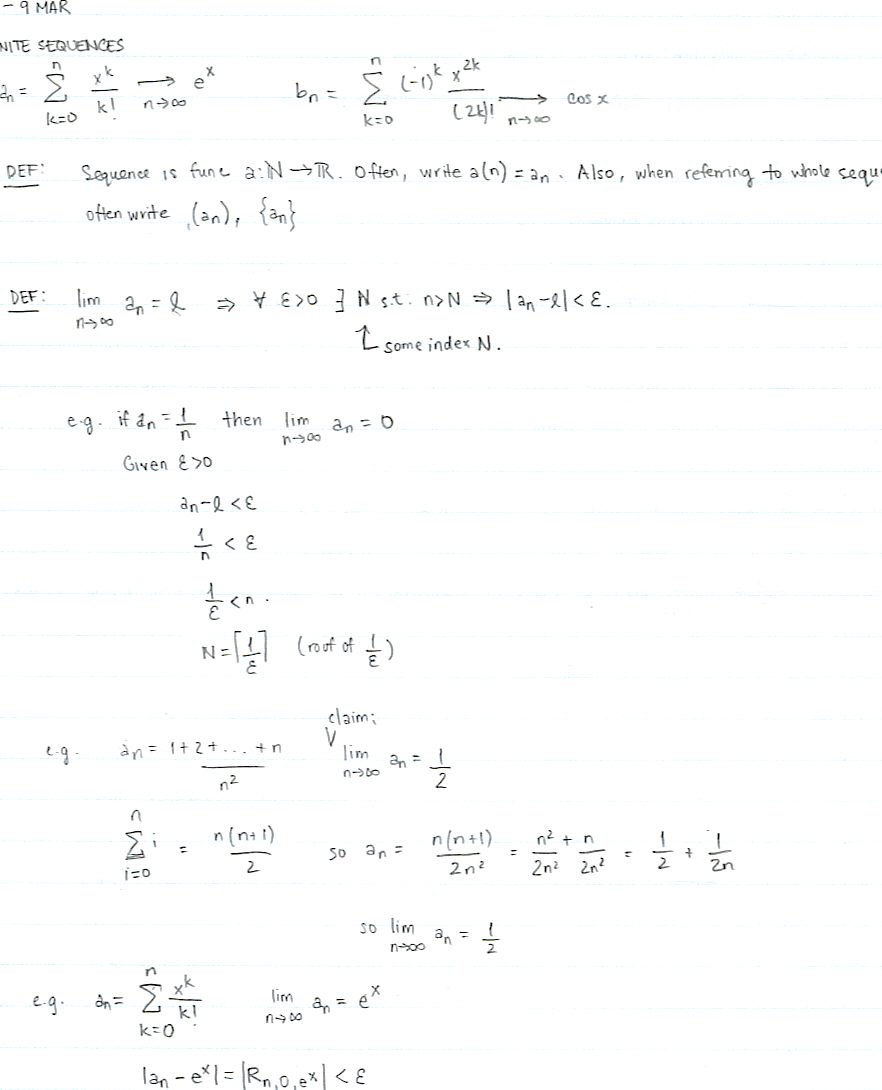 - 9 MAR
NITE SEQUENCES
an = Σ_{k=0}^{n} x^k/k! →_{n→∞} e^x    bn = Σ_{k=0}^{n} (-1)^k x^{2k}/(2k)! →_{n→∞} cos x
DEF: Sequence is func a:ℕ→ℝ. Often, write a(n) = an. Also, when referring to whole sequ
often write (an), {an}
DEF: lim_{n→∞} an = l ⇒ ∀ ε>0 ∃ N s.t. n>N ⇒ |an-l| < ε.
↑ some index N.
e.g. if an = 1/n then lim_{n→∞} an = 0
Given ε>0
an-l < ε
1/n < ε
1/ε < n.
N = ⌈1/ε⌉ (roof of 1/ε)
claim:
e.g. an = 1+2+...+n/n² lim_{n→∞} an = 1/2
Σ_{i=0}^{n} i = n(n+1)/2 so an = n(n+1)/2n² = n²/2n² + n/2n² = 1/2 + 1/2n
so lim_{n→∞} an = 1/2
e.g. an = Σ_{k=0}^{n} x^k/k! lim_{n→∞} an = e^x
|an - e^x| = |R_{n,0,e^x}| < ε